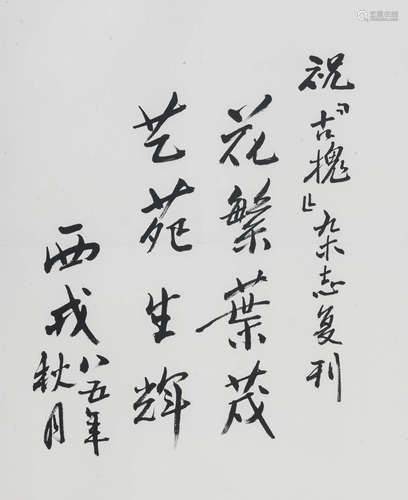 祝『古槐』杂志复刊
花繁葉茂
艺苑生辉
西戎
八五年
秋月